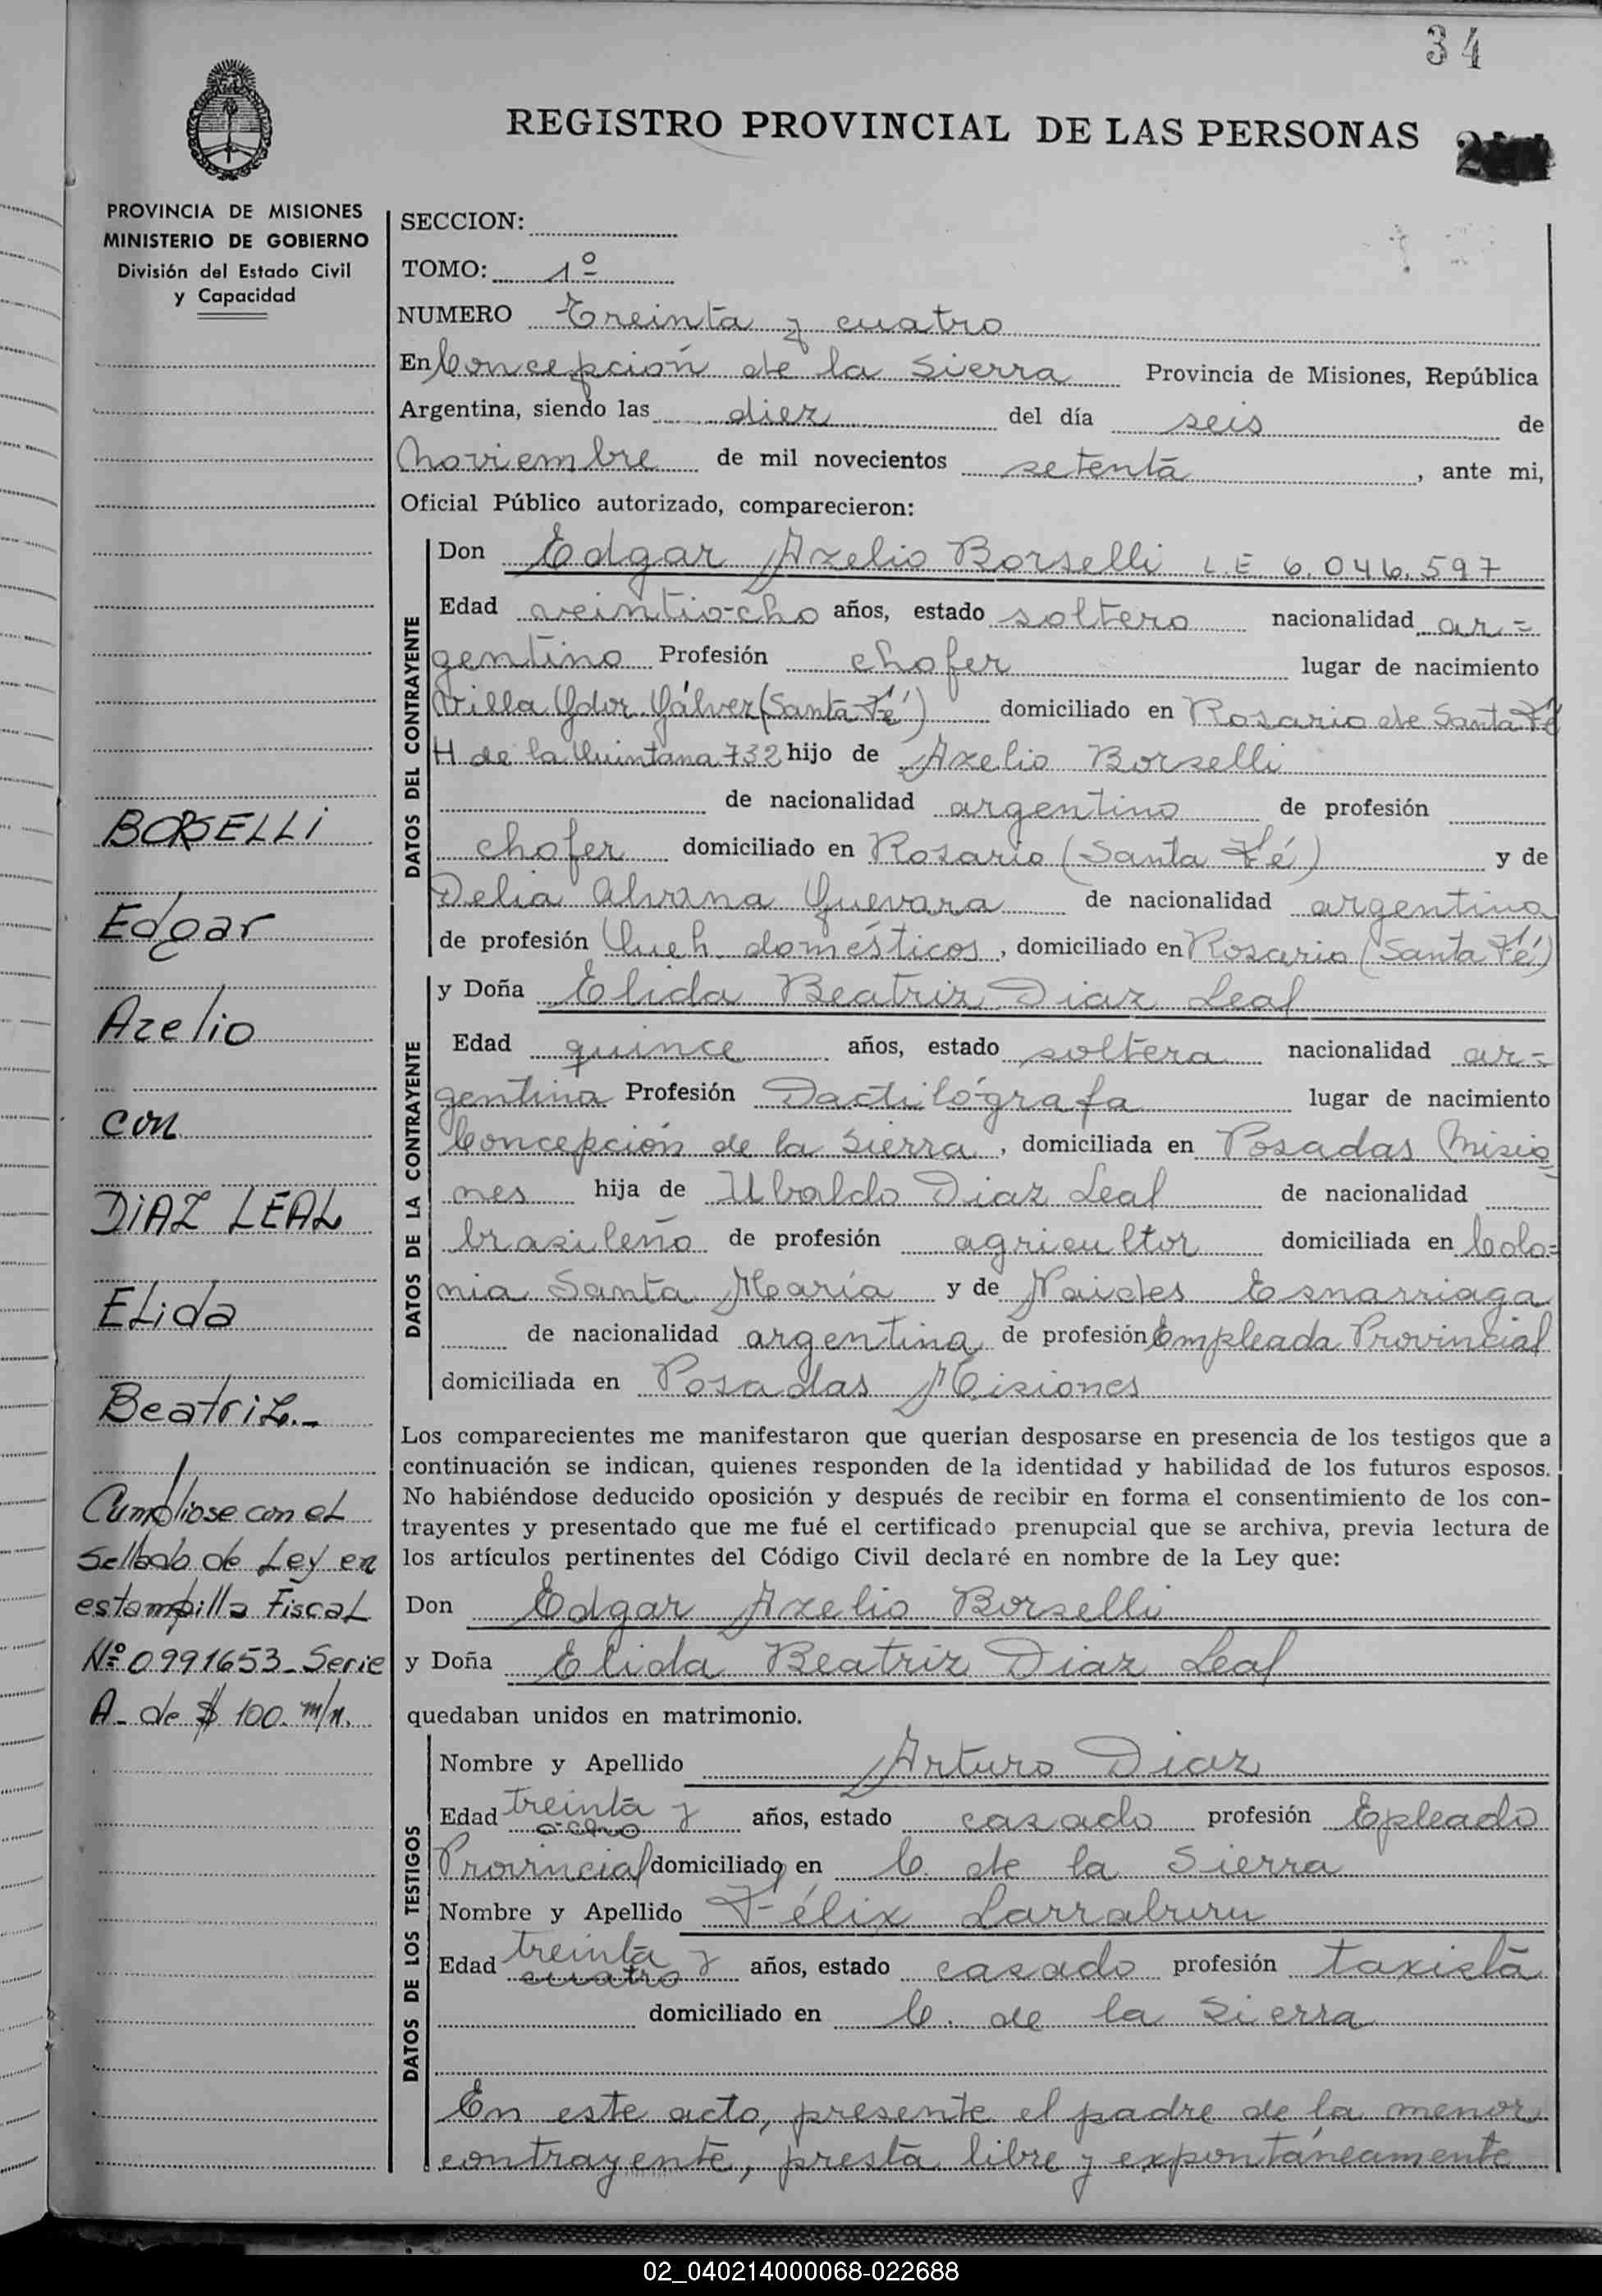 34
REGISTRO PROVINCIAL DE LAS PERSONAS
PROVINCIA DE MISIONES
MINISTERIO DE GOBIERNO
División del Estado Civil
y Capacidad
SECCION:
TOMO: 1º
NUMERO Treinta y cuatro
En Concepción de la Sierra Provincia de Misiones, República
Argentina, siendo las diez del día seis de
Noviembre de mil novecientos setenta, ante mi,
Oficial Público autorizado, comparecieron:
DATOS DEL CONTRAYENTE
Don Edgar Azelio Borselli L.E 6.046.597
Edad veintiocho años, estado soltero nacionalidad ar=
gentino Profesión chofer lugar de nacimiento
Villa Gdor. Gálvez (Santa Fé) domiciliado en Rosario de Santa Fé
H de la Quintana 732 hijo de Azelio Borselli
de nacionalidad argentino de profesión
chofer domiciliado en Rosario (Santa Fé) y de
Delia Guevara de nacionalidad argentina
de profesión Queh. domésticos, domiciliado en Rosario (Santa Fé)
DATOS DE LA CONTRAYENTE
y Doña Elida Beatriz Diaz Leal
Edad quince años, estado soltera nacionalidad ar=
gentina Profesión Dactilógrafa lugar de nacimiento
Concepción de la Sierra, domiciliada en Posadas Misio=
nes hija de Ubaldo Diaz Leal de nacionalidad
brasileño de profesión agricultor domiciliada en Colo=
nia Santa María y de Naides Esnarriaga
de nacionalidad argentina de profesión Empleada Provincial
domiciliada en Posadas Misiones
Los comparecientes me manifestaron que querían desposarse en presencia de los testigos que a
continuación se indican, quienes responden de la identidad y habilidad de los futuros esposos.
No habiéndose deducido oposición y después de recibir en forma el consentimiento de los con-
trayentes y presentado que me fué el certificado prenupcial que se archiva, previa lectura de
los artículos pertinentes del Código Civil declaré en nombre de la Ley que:
Don Edgar Azelio Borselli
y Doña Elida Beatriz Diaz Leal
quedaban unidos en matrimonio.
DATOS DE LOS TESTIGOS
Nombre y Apellido Arturo Diaz
Edad treinta y ocho años, estado casado profesión Epleado
Provincial domiciliado en C. de la Sierra
Nombre y Apellido Félix Larraburu
Edad treinta y cuatro años, estado casado profesión taxista
domiciliado en C. de la Sierra
En este acto, presente el padre de la menor
contrayente, presta libre y expontáneamente
BORSELLI
Edgar
Azelio
con
DIAZ LEAL
ELida
Beatriz.-
Cumpliose con el
Sellado de Ley en
estampilla Fiscal
Nº 0991653 - Serie
A - de $ 100. m/n.
02_040214000068-022688